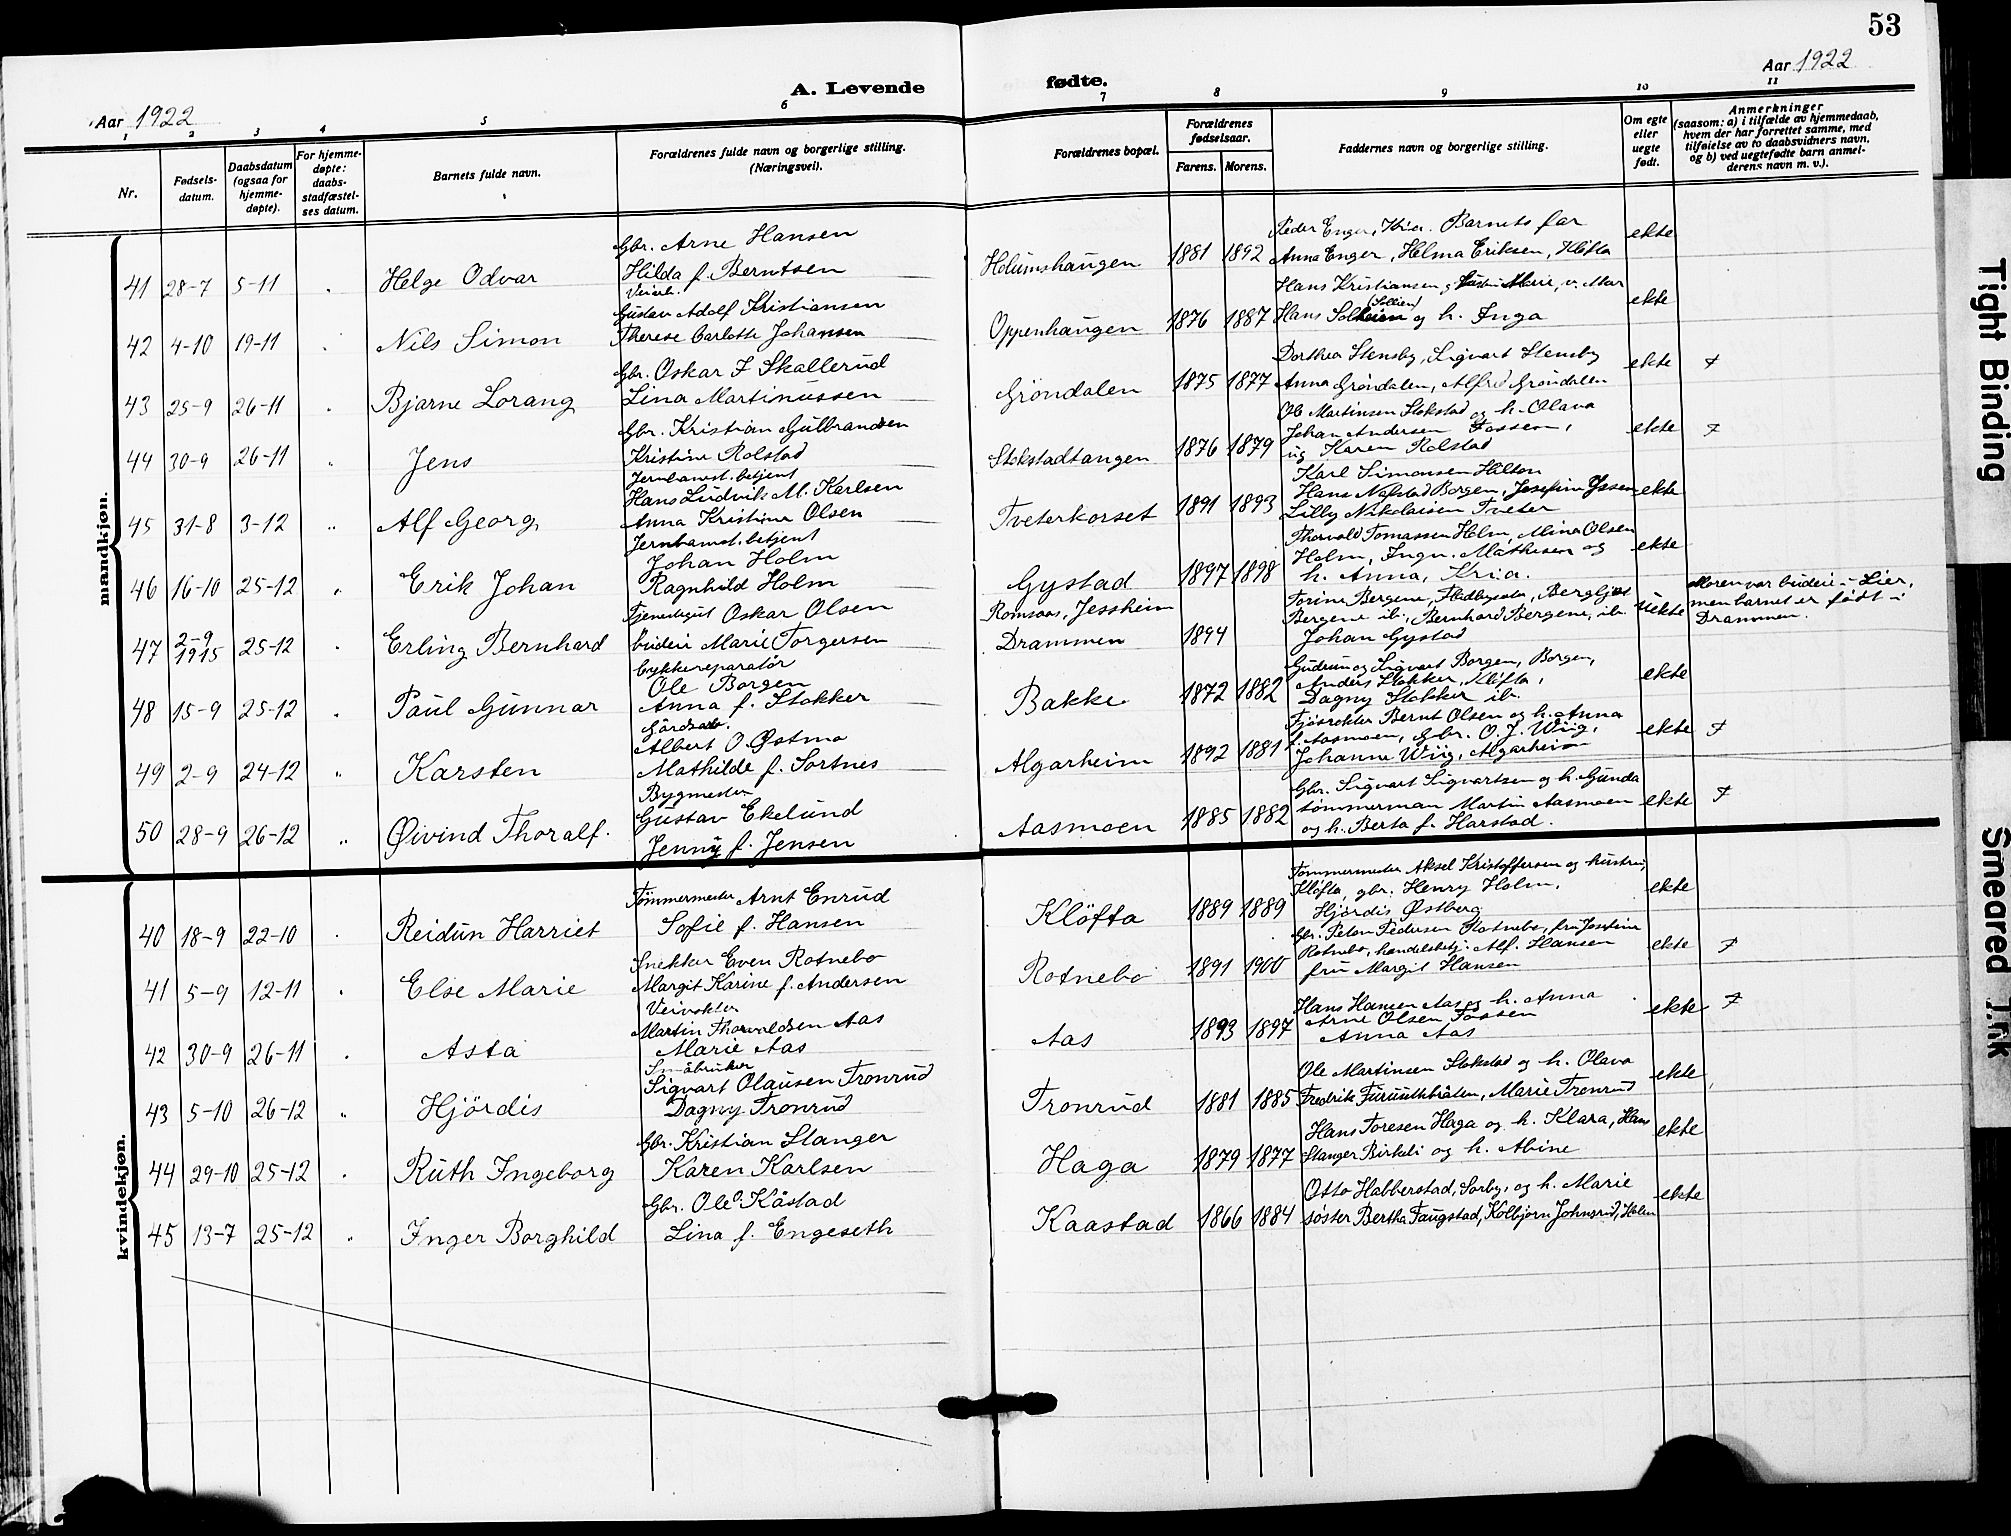 53
Aar 1922
A. Levende fødte.
Aar 1922
1 2 3 4 5 6 7 8 9 10 11
Nr.
Fødsels-
datum.
Daabsdatum
(ogsaa for
hjemme-
døpte).
For hjemme-
døpte:
daabs-
stadfæstel-
ses datum.
Barnets fulde navn.
Forældrenes fulde navn og borgerlige stilling.
(Næringsvei).
Forældrenes bopæl.
Forældrenes
fødselsaar.
Farens. Morens.
Faddernes navn og borgerlige stilling.
Om egte
eller
uegte
født.
Anmerkninger
(saasom: a) i tilfælde av hjemmedaab,
hvem der har forrettet samme, med
tilføielse av to daabsvidners navn,
og b) ved uegtefødte barn anmel-
derens navn m. v.).
mandkjøn.
41 28-7 5-11 Helge Odvar
Gbr. Arne Hansen
Hilda f. Berntsen
Holumshaugen 1881 1892
Peder Enger, Kria. Barnets far
Anna Enger, Helma Eriksen, Kløfta
ekte
42 4-10 19-11 Nils Simon
Veiarb.
Gustav Adolf Kristiansen
Therese Carlotte Johansen
Oppenhaugen 1876 1887
Hans Kristiansen g. Marie, v. Mar
(Sollien)
Hans og h. Inga
ekte
43 25-9 26-11 Bjarne Lorang
Gbr. Oskar I Skallerud
Lina Martinussen
Gröndalen 1875 1877
Dorthea Stensby, Sigvart Stensby
Anna Gröndalen, Alfred Gröndalen
ekte
44 30-9 26-11 " Jens
Gbr. Kristian Gulbrandsen
Kristine Rolstad
Stokstadtangen 1876 1879
Ole Martinsen Stokstad og h. Olava
Johan Andersen Fossem,
ug Karen Rolstad
ekte
45 31-8 3-12 " Alf Georg
Jernbanst. betjent
Hans Ludvik M. Karlsen
Anna Kristine Olsen
Tveterkorset 1891 1893
Karl Simensen Hilton
Hans Nafstad Borgen, Josefine
Lilly Nikolaisen Tveter
ekte
46 16-10 25-12 " Erik Johan
Jernbanst. betjent
Johan Holm
Ragnhild Holm
Gystad 1897 1898
Thorvald Tomassen Holm, Mina Olsen
Holm, Ingv. Mathisen og
h. Anna, Kria.
ekte
47 2-9 1915 25-12 Erling Bernhard
Tjenestegut Oskar Olsen
budeie Marie Torgersen
Romsaas, Jessheim
Drammen 1894
Torine Bergene, Bergljot
Bergene ib., Bernhard Bergene, ib.
Johan Gystad
uekte
Moren var budeie i Lier,
men barnet er født i
Drammen.
48 15-9 25-12 Paul Gunnar
Cykkereparatør
Ole Borgen
Anna f. Stokker
Bakke 1872 1882
Gudrun og Sigvart Borgen, Borgen,
Anders Stokker, Kløfta,
Dagny Stokker ib.
ekte
49 2-9 24-12 " Karsten
Gårdsarb.
Albert O. Østmo
Mathilde f. Sortnes
Algarheim 1892 1881
Fjösrøkter Bernt Olsen og h. Anna
f. Aasmoen, Gbr. O. J. Wiig,
Johanne Wiig, Algarheim
ekte
50 28-9 26-12 " Øivind Thoralf.
Bygmester
Gustav Ekelund
Jenny f. Jensen
Aasmoen 1885 1882
Gbr. Sigvart Sigvartsen og h. Gunda
tømmerman Martin Aasmoen
og h. Berta f. Harstad.
ekte
kvindekjøn.
40 18-9 22-10 Reidun Harriet
Tømmermester Arnt Enrud
Sofie f. Hansen
Klöfta 1889 1889
Tømmermester Aksel Kristoffersen og hustru,
Kløfta, gbr. Henry Holm,
Hjördis Østberg
ekte
41 5-9 12-11 Else Marie
Snekker Even Rotnebo
Margit Karine f. Andersen
Rotnebo 1891 1900
Gbr. Peter Pedersen Rotnebo, fru Josefine
Rotnebo, handelsbetj. Alf. Hansen
fru Margit Hansen
ekte
42 30-9 26-11 Asta
Veivokter
Martin Thorvaldsen Aas
Marie Aas
Aas 1893 1897
Hans Hansen Aas og h. Anna
Arne Olsen Fossen
Anna Aas
ekte
43 5-10 26-12 " Hjördis
Småbruker
Sigvart Olausen Tronrud
Dagny Tronrud
Tronrud 1881 1885
Ole Martinsen Stokstad og h. Olava
Fredrik Furuuthbråten, Marie Tronrud
ekte
44 29-10 25-12 Ruth Ingeborg
Gbr. Kristian Stanger
Karen Karlsen
Haga 1879 1877
Hans Toresen Haga og h. Klara, Hans
Stanger Birkeli og h. Abine
ekte
45 13-7 25-12 " Inger Borghild
Gbr. Ole Kåstad
Lina f. Engeseth
Kaastad 1866 1884
Otto Habberstad, Sørby, og h. Marie
søster Bertha Faugstad, Kolbjørn Johnsrud, Holm
ekte
Tight Binding
Smeared Ink